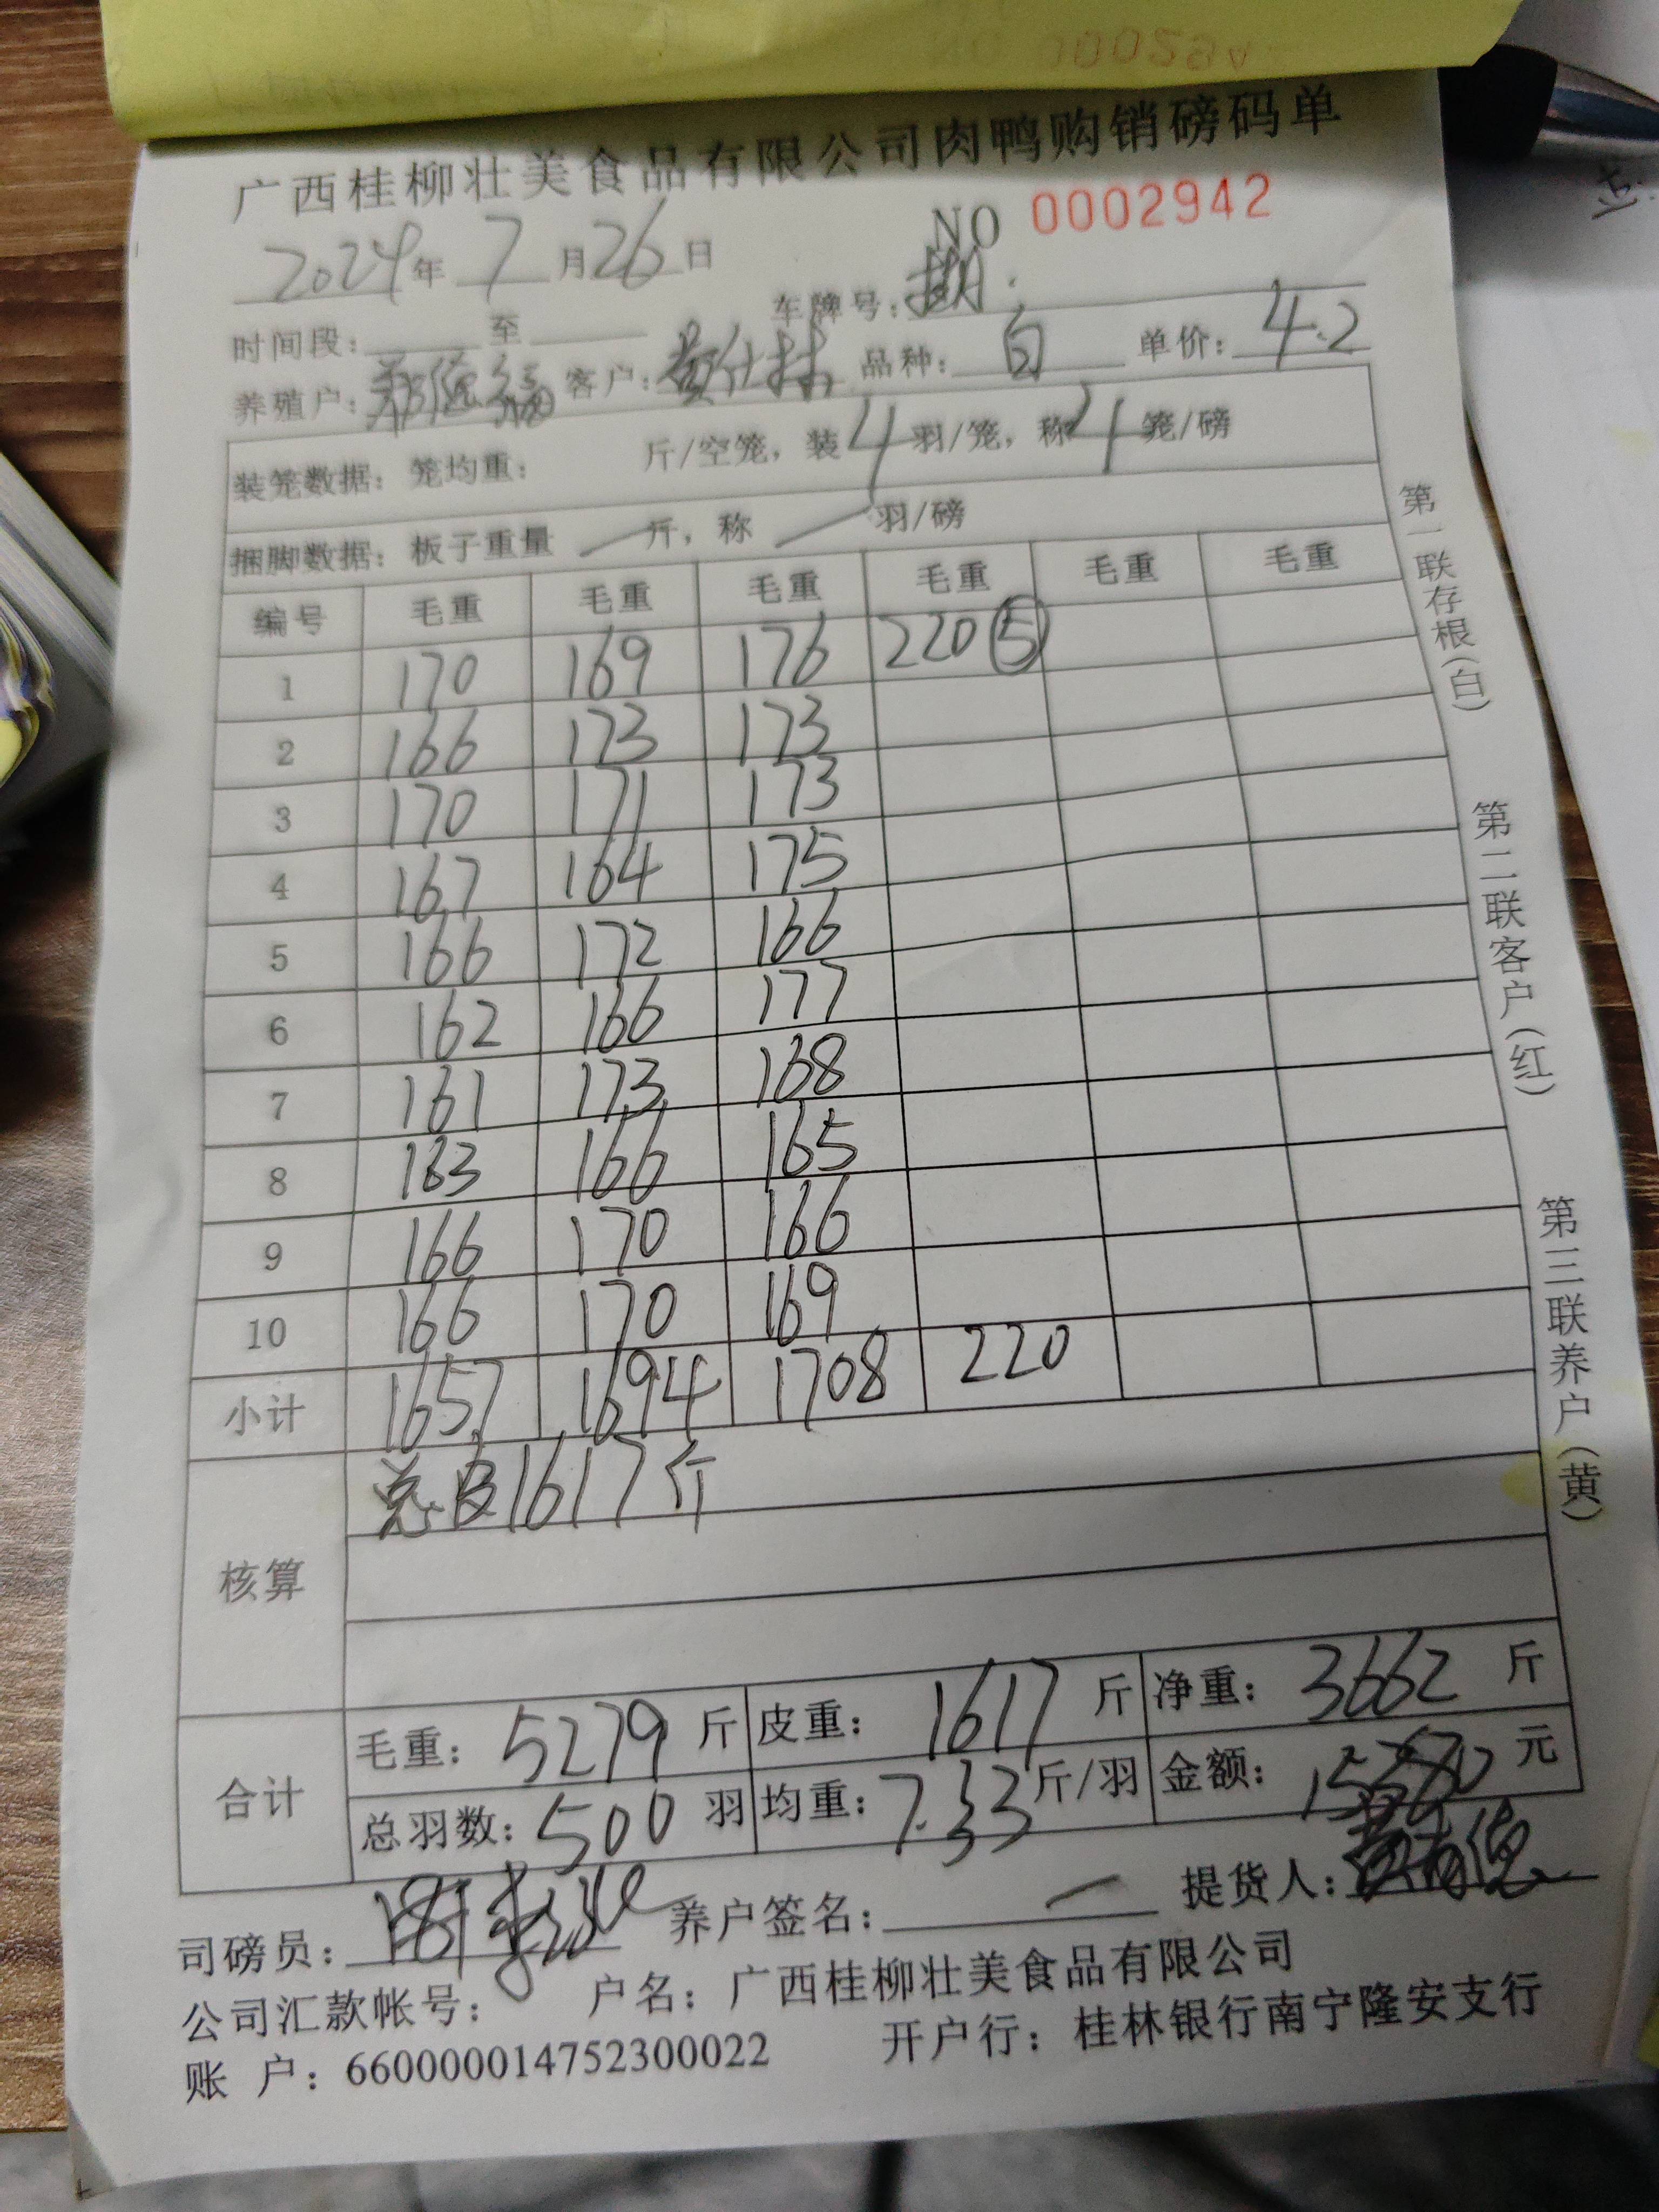 广西桂柳壮美食品有限公司肉鸭购销磅码单
2024年 7 月 26 日 NO 0002942
时间段: 至 车牌号:
养殖户: 客户: 黄仕林 品种: 白 单价: 4.2
装笼数据: 笼均重: 斤/空笼, 装 4 羽/笼, 称 4 笼/磅
捆脚数据: 板子重量 斤, 称 羽/磅
编号 毛重 毛重 毛重 毛重 毛重 毛重
1 170 169 176 220 ⑤
2 166 173 173
3 170 171 173
4 167 164 175
5 166 172 166
6 162 166 177
7 161 173 168
8 163 166 165
9 166 170 166
10 166 170 169
小计 1657 1694 1708 220
核算 总皮1617斤
合计 毛重: 5279 斤 皮重: 1617 斤 净重: 3662 斤
总羽数: 500 羽 均重: 7.33 斤/羽 金额: 元
司磅员: 养户签名: 提货人:
公司汇款帐号: 户名: 广西桂柳壮美食品有限公司
账 户: 660000014752300022 开户行: 桂林银行南宁隆安支行
第一联存根(白)
第二联客户(红)
第三联养户(黄)